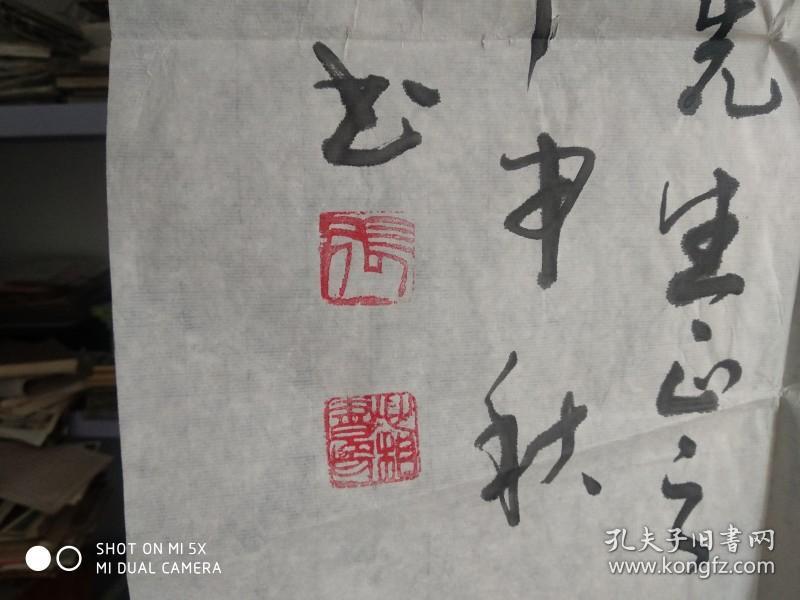 先生正之
申秋
书
SHOT ON MI 5X
MI DUAL CAMERA
孔夫子旧书网
www.kongfz.com